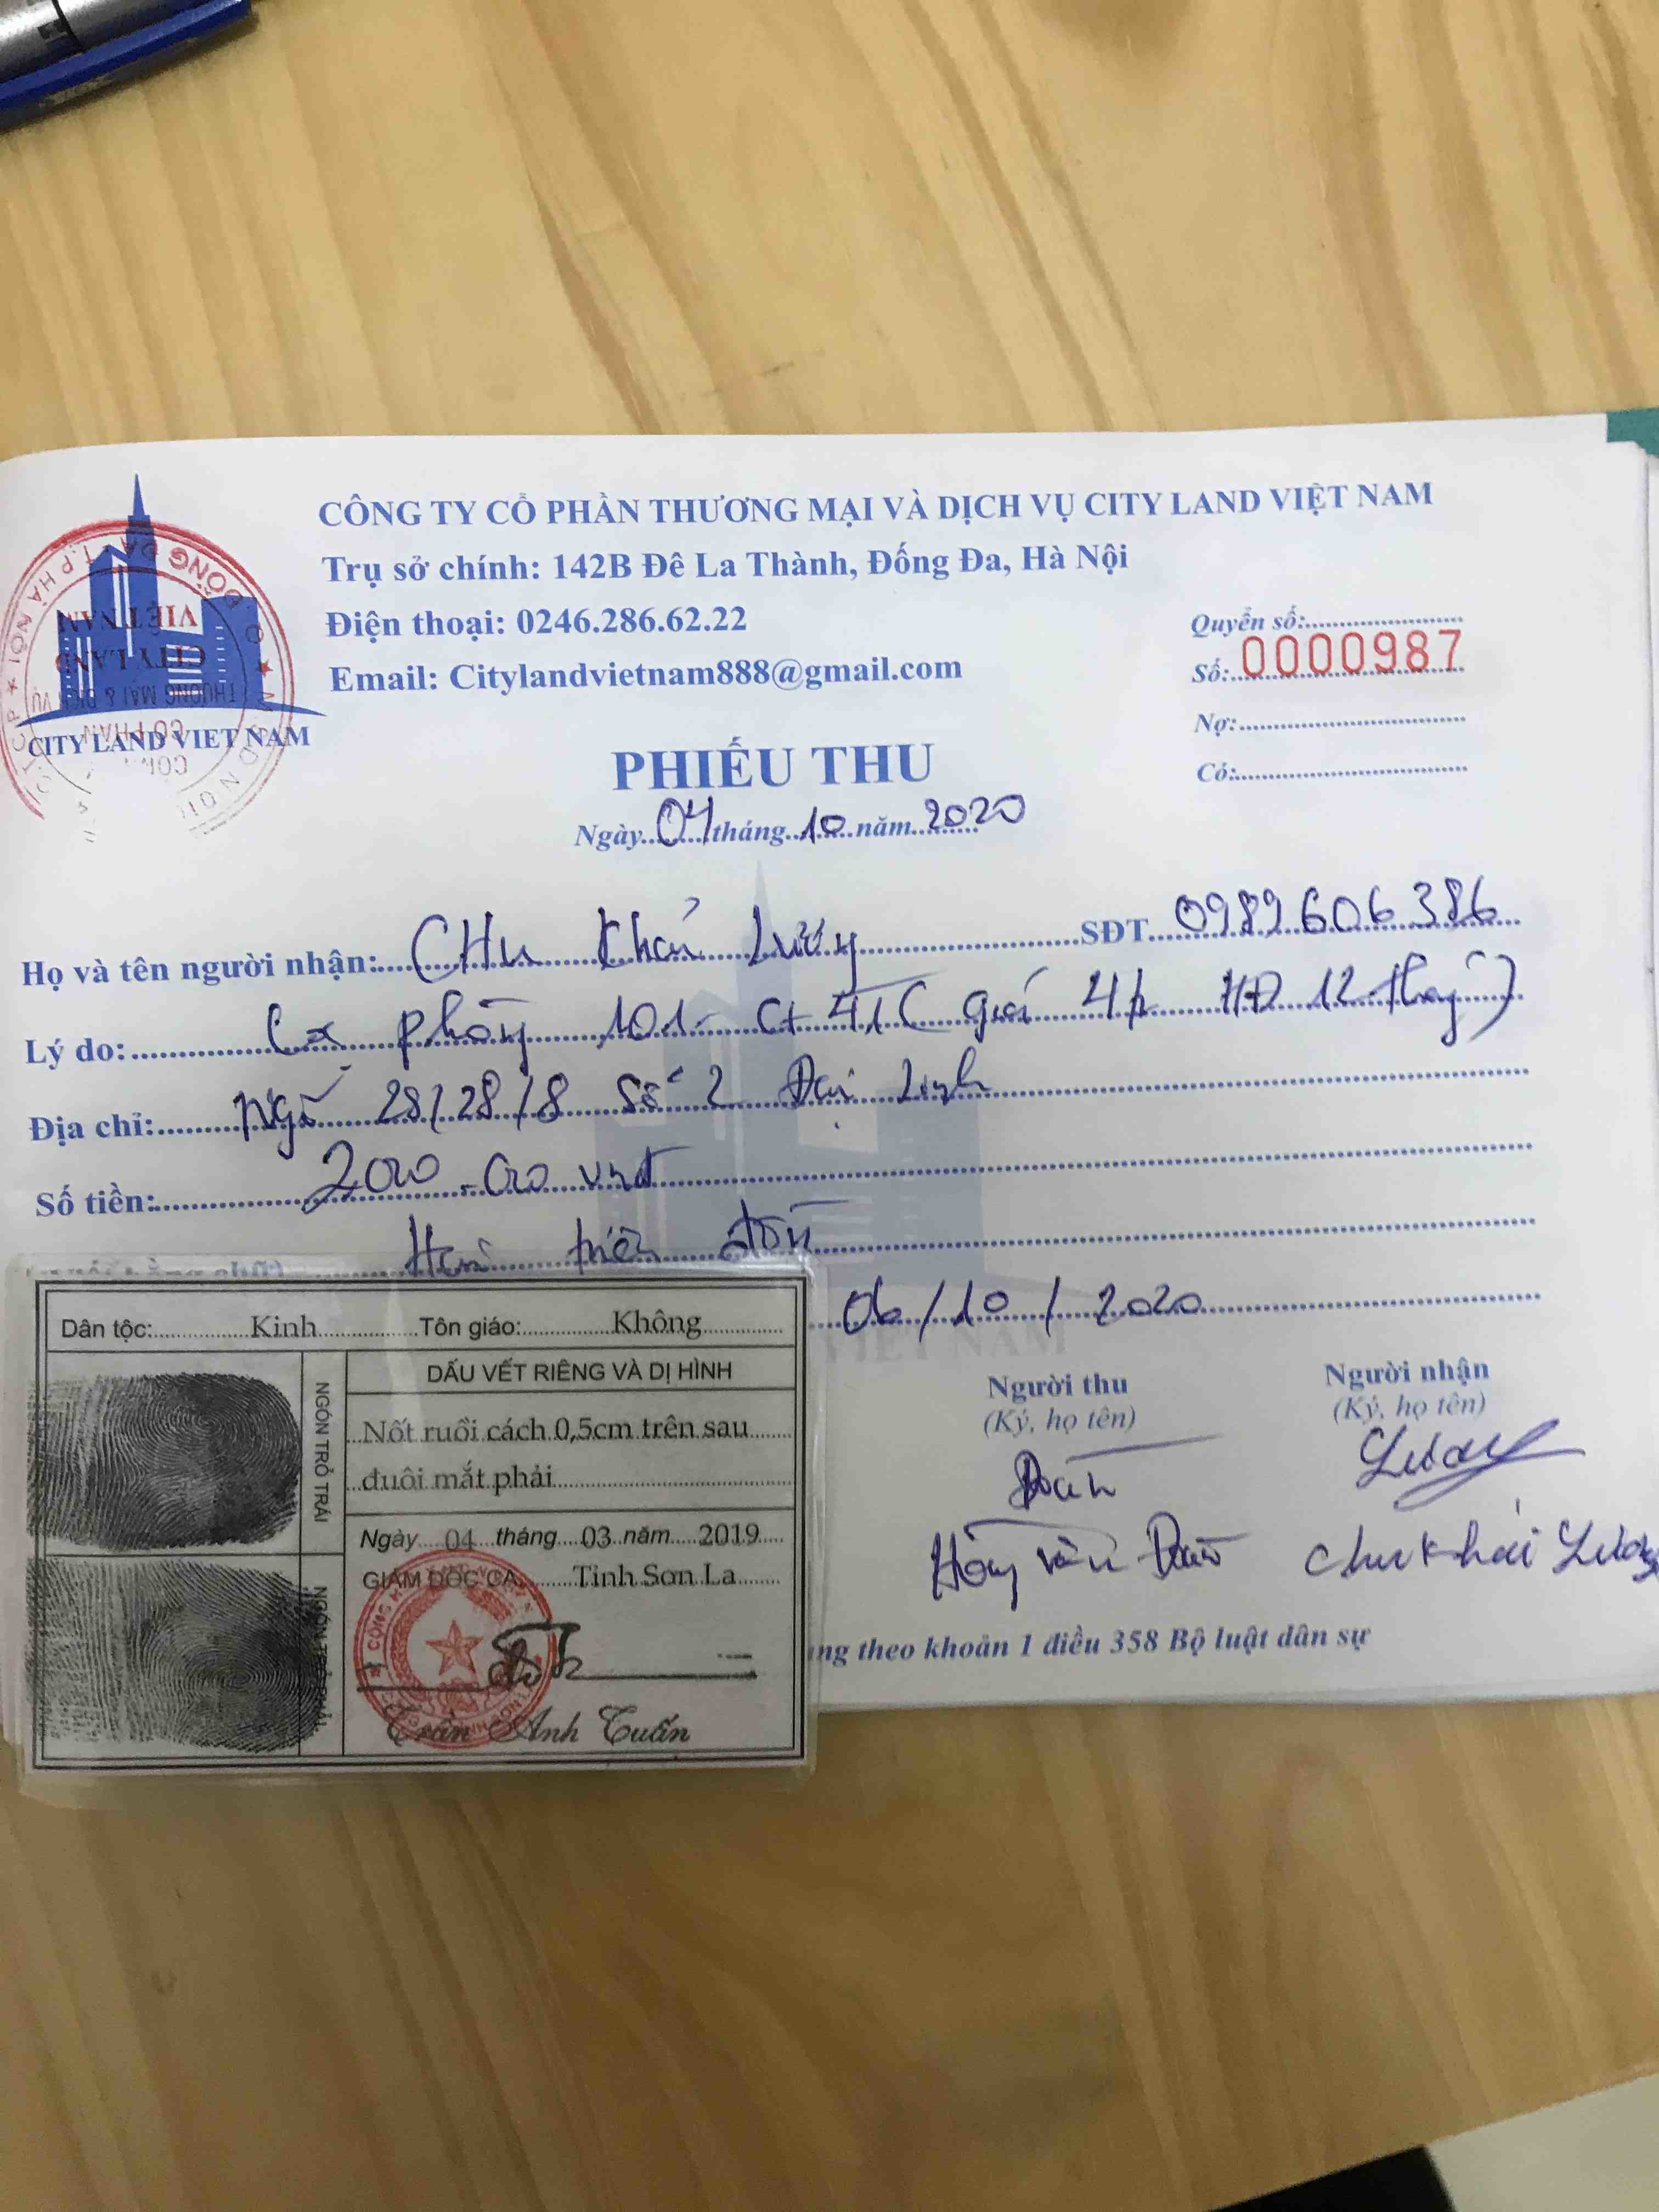 CÔNG TY CỔ PHẦN THƯƠNG MẠI VÀ DỊCH VỤ CITY LAND VIỆT NAM
Trụ sở chính: 142B Đê La Thành, Đống Đa, Hà Nội
Điện thoại: 0246.286.62.22
Email: Citylandvietnam888@gmail.com
CITY LAND VIET NAM
Quyển số:
Số: 0000987
Nợ:
Có:
PHIẾU THU
Ngày 04 tháng 10 năm 2020
Họ và tên người nhận: CHu Khải Lương SĐT 0989606386
Lý do: Cọc phòng 101 - CT 41 ( giá 4tr HĐ 12 tháng )
Địa chỉ: Ngõ 28/28/8 Số 2 Đại Linh
Số tiền: 2000.000 vnđ
Hai triệu đồng
06/10/2020
Người thu Người nhận
(Ký, họ tên) (Ký, họ tên)
Chu Khải Lương
theo khoản 1 điều 358 Bộ luật dân sự
Dân tộc: Kinh Tôn giáo: Không
DẤU VẾT RIÊNG VÀ DỊ HÌNH
NGÓN TRỎ TRÁI
Nốt ruồi cách 0,5cm trên sau
đuôi mắt phải
Ngày 04 tháng 03 năm 2019
GIÁM ĐỐC CA Tỉnh Sơn La
NGÓN TRỎ PHẢI
Trần Anh Tuấn